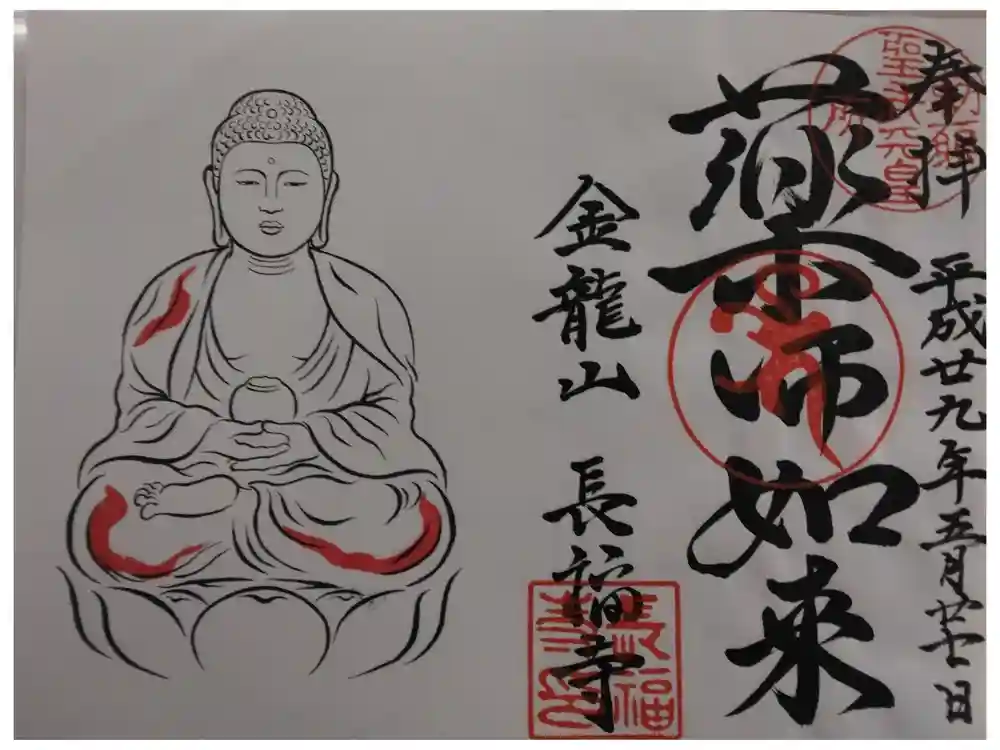 奉拝　平成廿九年五月廿一日
勅願
聖武天皇
所
薬師如来
金龍山　長福寺
長福
寺印